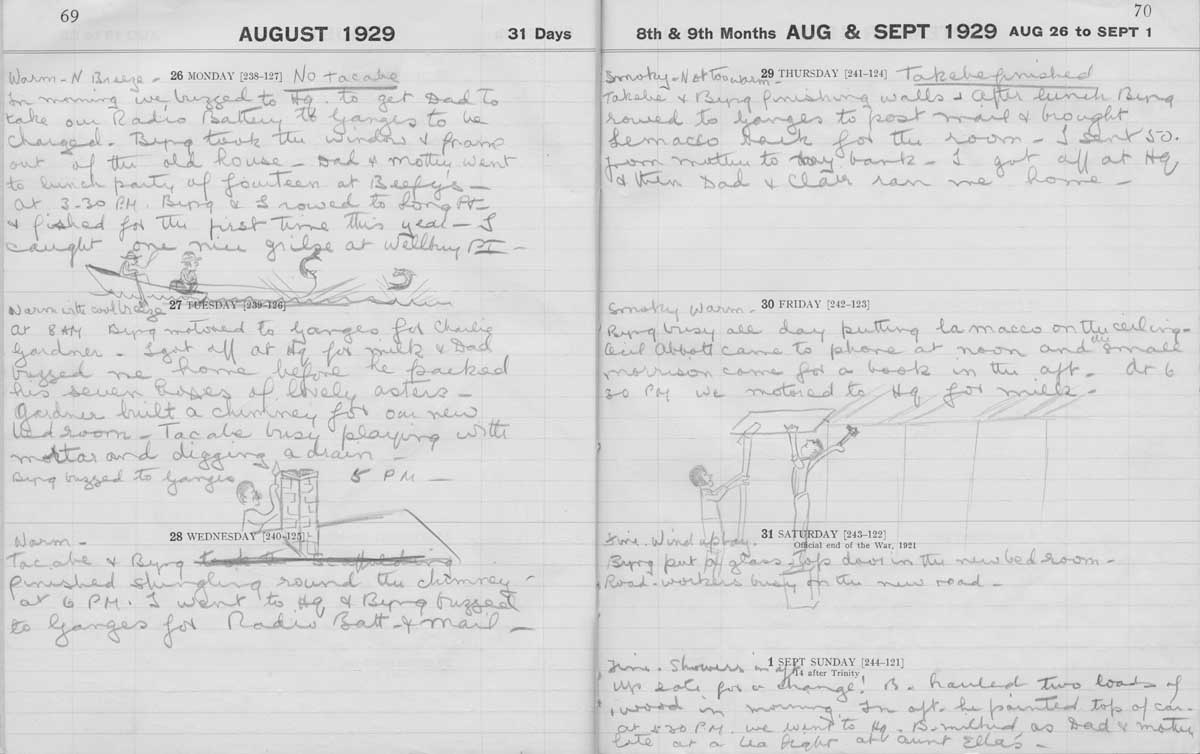 69
AUGUST 1929 31 Days
Warm - N Breeze - 26 MONDAY [238-127] No tacabe
In morning we buzzed to Hq. to get Dad to
take our Radio Battery to Ganges to be
charged. Byng took the window & frame
out of the old house - Dad & mother went
to lunch party of fourteen at Beefy's -
at 3-30 P.M. Byng & I rowed to Long Pt -
& fished for the first time this year - I
caught one nice grilse at Wellbury PT -
Warm with cool breeze 27 TUESDAY [239-126]
at 8 AM Byng motored to Ganges for Charlie
Gardner - I got off at Hq for milk & Dad
buzzed me home before he packed
his seven boxes of lovely asters -
Gardner built a chimney for our new
bedroom - Tacabe busy playing with
mortar and digging a drain -
Byng buzzed to Ganges 5 PM -
Warm - 28 WEDNESDAY [240-125]
Tacabe & Byng took scaffolding
finished shingling round the chimney -
at 6 PM. I went to Hq & Byng buzzed
to Ganges for Radio Batt - & mail -
70
8th & 9th Months AUG & SEPT 1929 AUG 26 to SEPT 1
Smoky - Not too warm - 29 THURSDAY [241-124] Takebe finished
Takebe & Byng finishing walls & after lunch Byng
rowed to Ganges to post mail & brought
Lemacco back for the room - I sent 50.
from mother to my bank - I got off at Hq
& then Dad & Clair ran me home -
Smoky Warm - 30 FRIDAY [242-123]
Byng busy all day putting la macco on the ceiling -
Cecil Abbott came to phone at noon and the small
morrison came for a book in the aft - At 6
30 PM we motored to Hq for milk -
Fine. Wind up bay. 31 SATURDAY [243-122]
Official end of the War, 1921
Byng put a glass-top door in the new bedroom -
Road-workers busy on the new road -
Fine. Showers in aft 1 SEPT SUNDAY [244-121]
14 after Trinity
Up late for a change! B. hauled two loads of
wood in morning In aft. he painted top of car -
at 5 30 P.M. we went to Hq. B. milked as Dad & mother
late at a tea fight at aunt Ella's